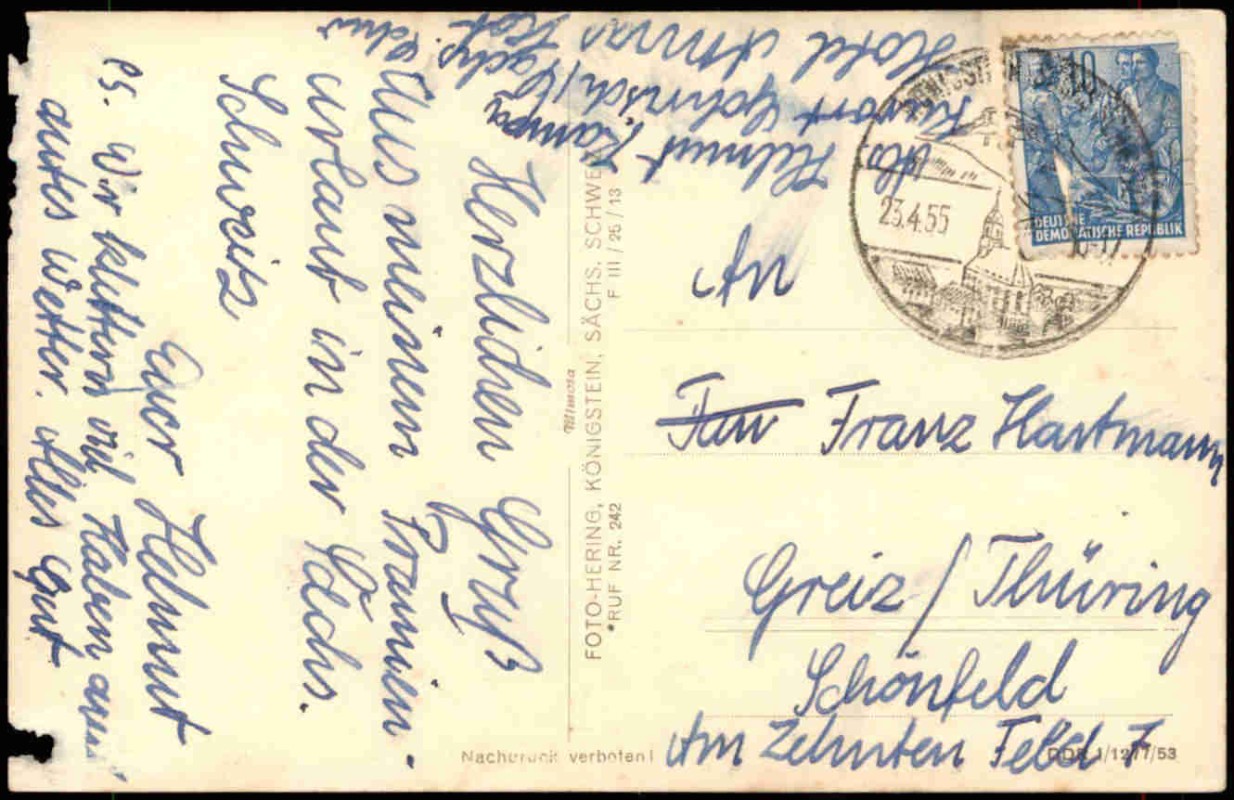 Herzlichen Gruß
Aus meinem Prämien-
urlaub in der Sächs.
Schweiz
Euer Helmut
PS. Wir klettern viel haben auch
gutes Wetter. Alles Gut
Abs Helmut Rampa
Kurort Gohrisch/Sächs. Schw
Hotel Annas Hof
Mimosa
FOTO-HERING, KÖNIGSTEIN, SÄCHS. SCHWEIZ
*RUF NR. 242
F III / 25 / 13
Nachdruck verboten!
10
DEUTSCHE
DEMOKRATISCHE REPUBLIK
23.4.55
An
Fam Franz Hartmann
Greiz / Thüring
Schönfeld
Am Zehnten Feld 7
DDR 1/12 17/53